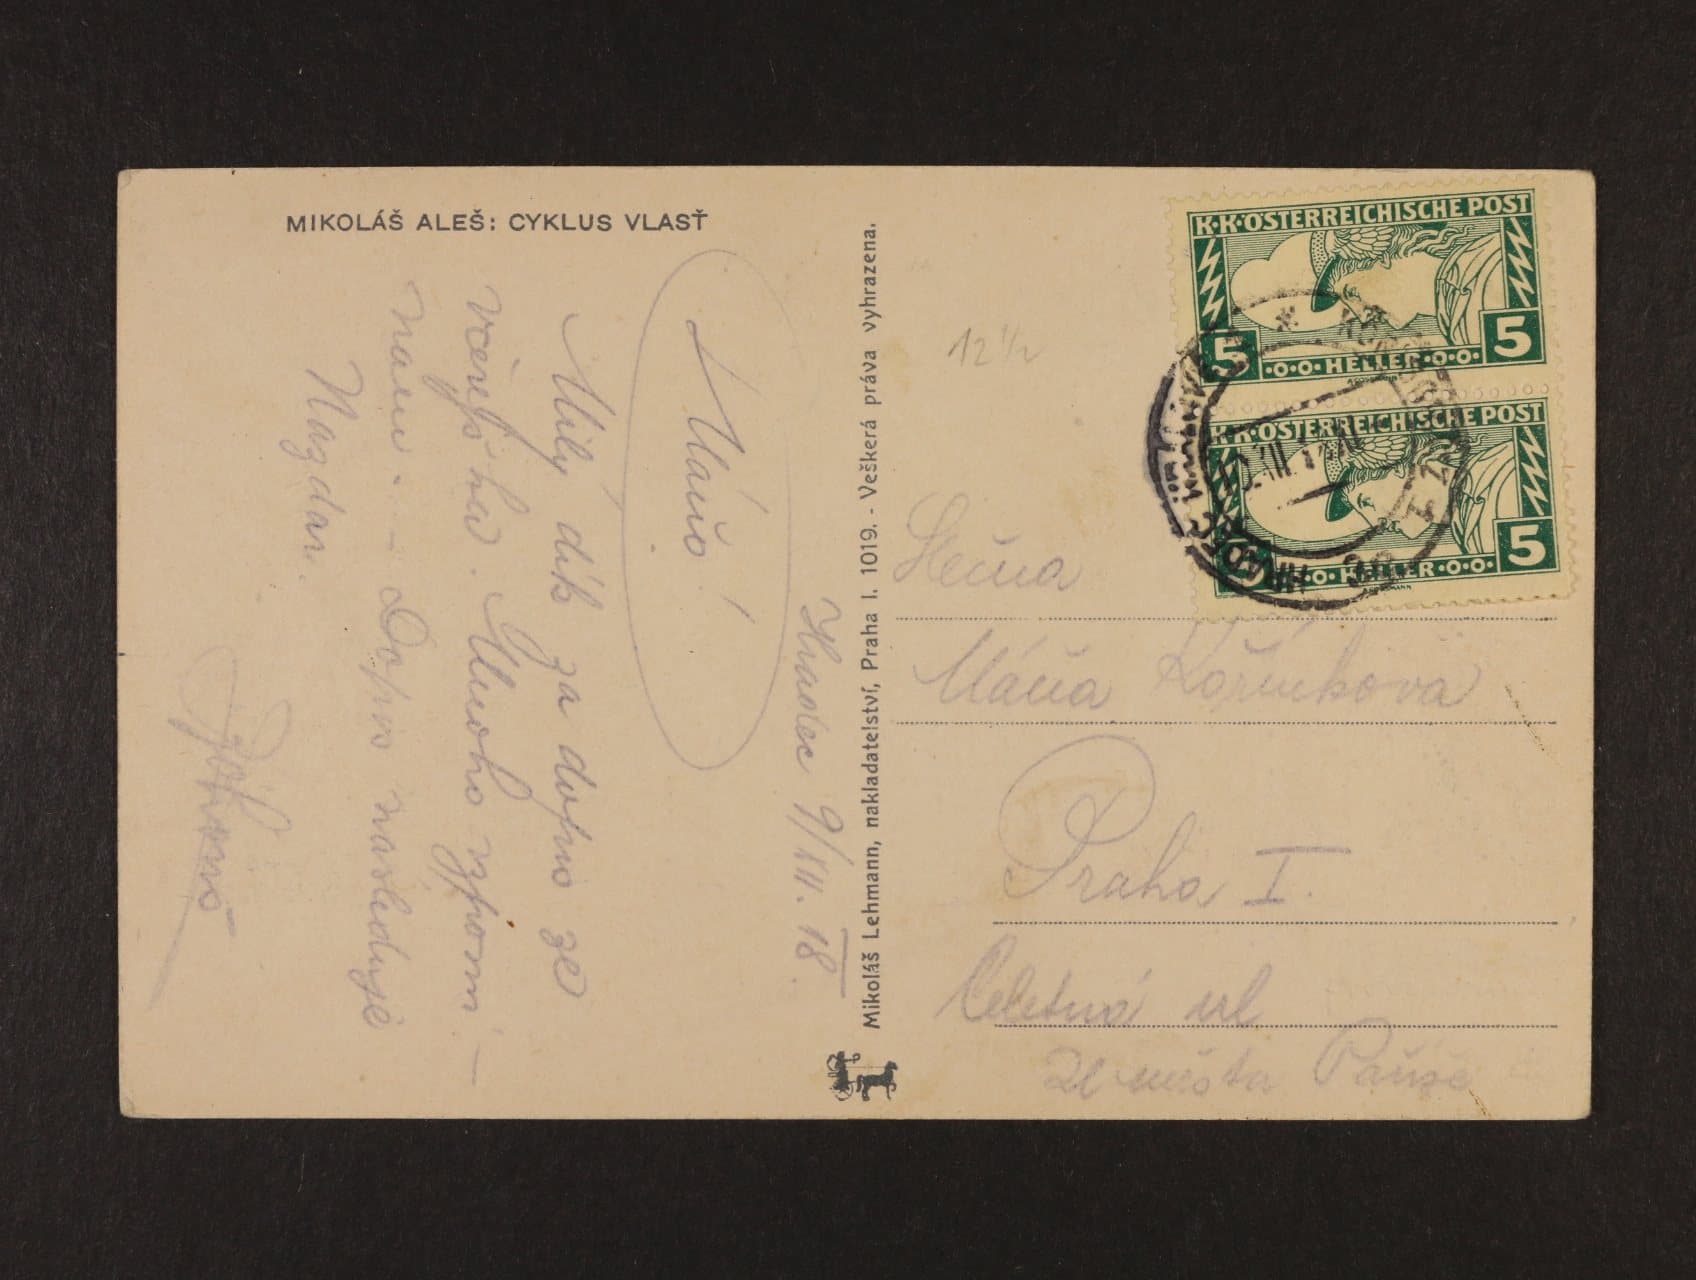 MIKOLÁŠ ALEŠ: CYKLUS VLASŤ
Hradec 9/XII. 18.
Máňo!
Milý dík za dopis ze
včerejška. Mnoho vzpomí-
nám. - Dopis následuje
Nazdar.
Mikoláš Lehmann, nakladatelství, Praha I. 1019. - Veškerá práva vyhrazena.
12 1/2
K·K·ÖSTERREICHISCHE POST
5 HELLER 5
K·K·ÖSTERREICHISCHE POST
5 HELLER 5
HRADEC
XII
Slečna
Máňa Kořínkova
Praha I.
Celetná ul
U města Paříže